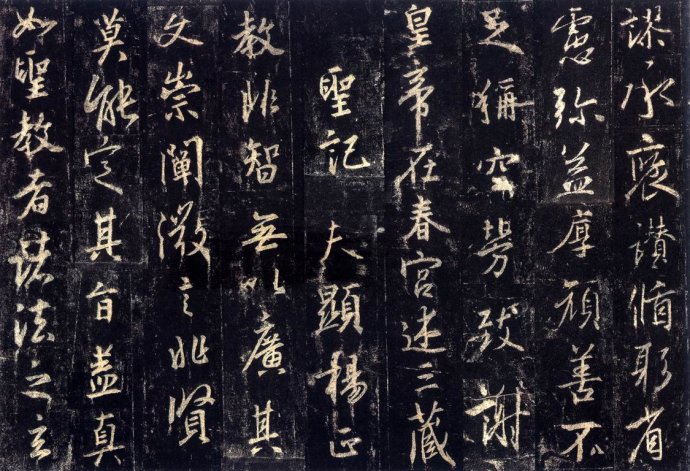 謬承褒讚循躬省
慮弥益厚顔善不
足稱空勞致謝
皇帝在春宮述三藏
聖記 夫顯揚正
教非智無以廣其
文崇闡微言非賢
莫能定其旨盖真
如聖教者諸法之玄